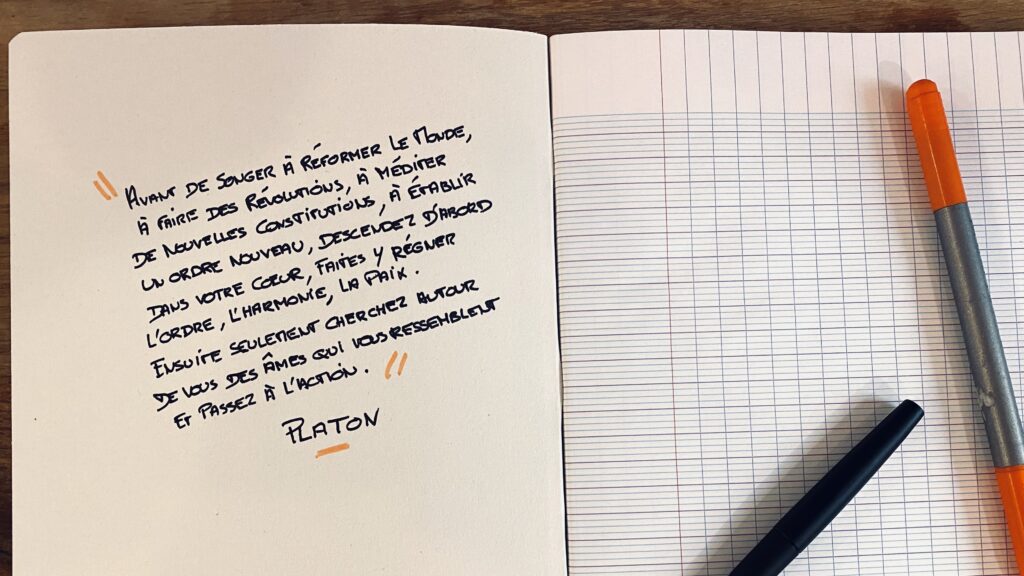 " Avant de songer à réformer le Monde,
à faire des Révolutions, à méditer
de nouvelles Constitutions, à établir
un ordre nouveau, descendez d'abord
dans votre cœur, faites y régner
l'ordre, l'harmonie, la Paix.
Ensuite seulement cherchez autour
de vous des âmes qui vous ressemblent
et passez à l'action. "
PLATON